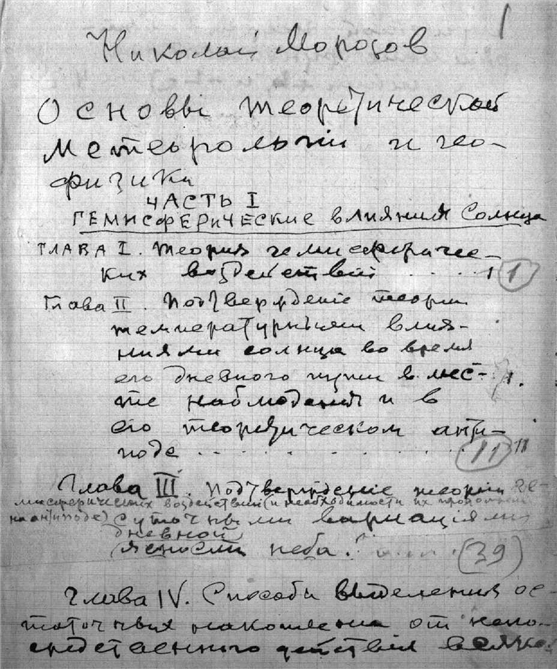 1
Николай Морозов
Основы теоретической
метеорологии и гео-
физики
ЧАСТЬ I
ГЕМИСФЕРИЧЕСКИЕ влияния Солнца
ГЛАВА I. Теория гемисфериче-
ких воздействий . . . . . 1 (1)
Глава II. Подтверждение теории
температурными влия-
ниями солнца во время
его дневного пути в мес-
те наблюдения и в
его теоретическом анти-
поде . . . . . . . . . (11) 11
Глава III. Подтверждение теории ге-
мисферических воздействий (и необходимости их
на антиподе) суточными вариациями
дневной
ясности неба. (39)
Глава IV. Способы выделения ос-
таточных накоплений от непо-
средственного действия